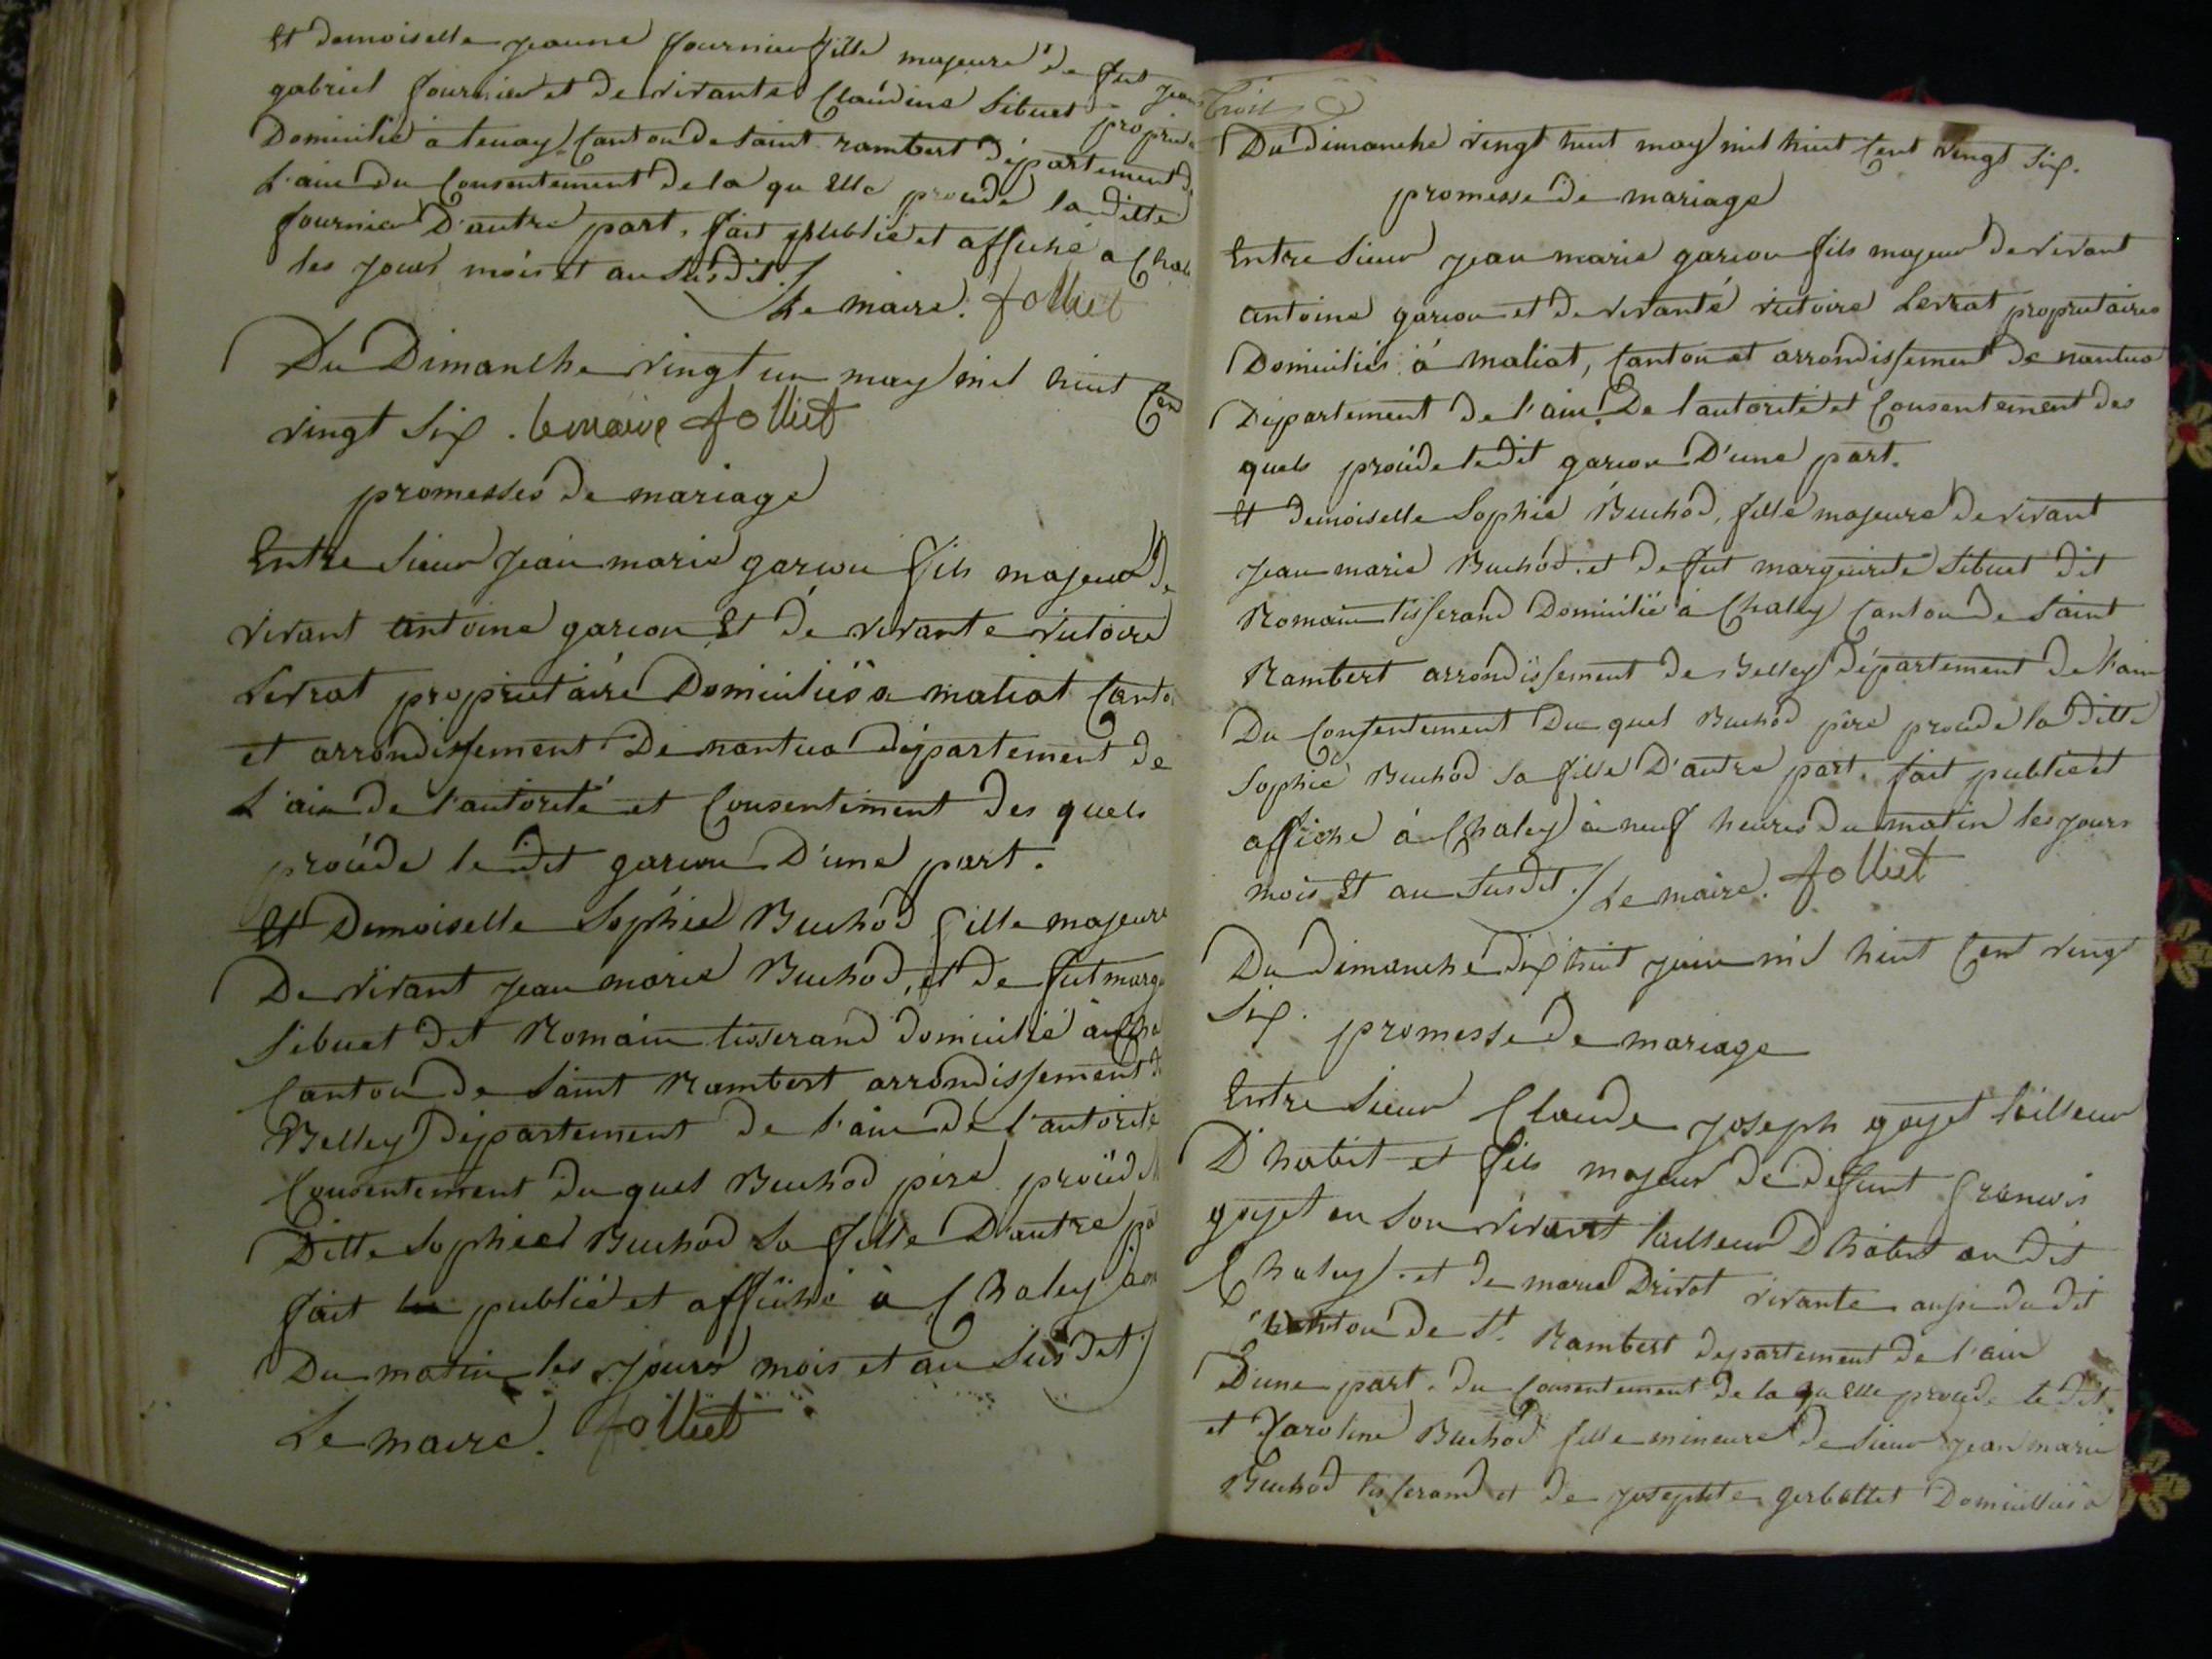 Et demoiselle jeanne fournier fille majeure de fut jean
gabriel fournier et de vivante Claudine Sibuet propriet
Domicilié a tenay Canton de Saint rambert département de
L'ain du Consentement de la qu Elle procéde la ditte
fournier D'autre part. fait publié et affiché a Chal
les jours mois et an Susdit./
Le maire. folliet
Du Dimanche vingt un may mil huit Cen
vingt Six . le maire folliet
promesses de mariage
Entre Sieur jean marie garcon fils majeur de
vivant antoine garcon Et de vivante victoire
Levrat proprietaire Domiciliés a maliat Canto
et arrondissement De nantua département de
L'ain de l'autorité et Consentiment des quels
procéde le dit garcon D'une part.
Et Demoiselle Sophie Buchod fille majeure
De vivant jean marie Buchod, et de fut marg
Sibuet dit Romain tisserand domicilié a Cha
Canton de Saint Rambert arrondissement d
Belley département de l'ain de l'autorité
Consentement du quel Buchod pere procéde
Ditte Sophie Buchod Sa fille D'autre pa
fait publié et affiché à Chaley
Du matin les jours mois et an Sus dit /
Le maire. folliet
Trois
Du dimanche vingt huit may mil huit Cent vingt Six.
promesse de mariage
Entre Sieur jean marie garcon fils majeur de vivant
antoine garcon et de vivante victoire Levrat proprietaires
Domiciliés à maliat, Canton et arrondissement de nantua
Département de l'ain. De l'autorité et Consentement des
quels procéde le dit garcon D'une part.
Et demoiselle Sophie Buchod, fille majeure de vivant
jean marie Buchod. et de fut marguirite Sibuet dit
Romain tisserand Domicilié à Chaley Canton de Saint
Rambert arrondissement de Belley département de l'ain
Du Consentement Du quel Buchod père procéde la ditte
Sophie Buchod Sa fille D'autre part. fait publié et
affiché à Chaley à neuf heures du matin les jours
mois Et an Susdit./ Le maire. folliet
Du dimanche dix huit juin mil huit Cent vingt
Six. promesse de mariage
Entre Sieur Claude joseph goyet tailleur
D'habit et fils majeur de défunt francois
goyet en Son vivant tailleur D'habit au dit
Chaley. et de marie Drivot vivante aussi du dit
Canton de St. Rambert departement de l'ain
D'une part. du Consentement de la qu Elle procéde le dit.
et Caroline Buchod fille mineure de Sieur jean marie
Buchod tisserand et de josephte gerbottet Domicilliés a